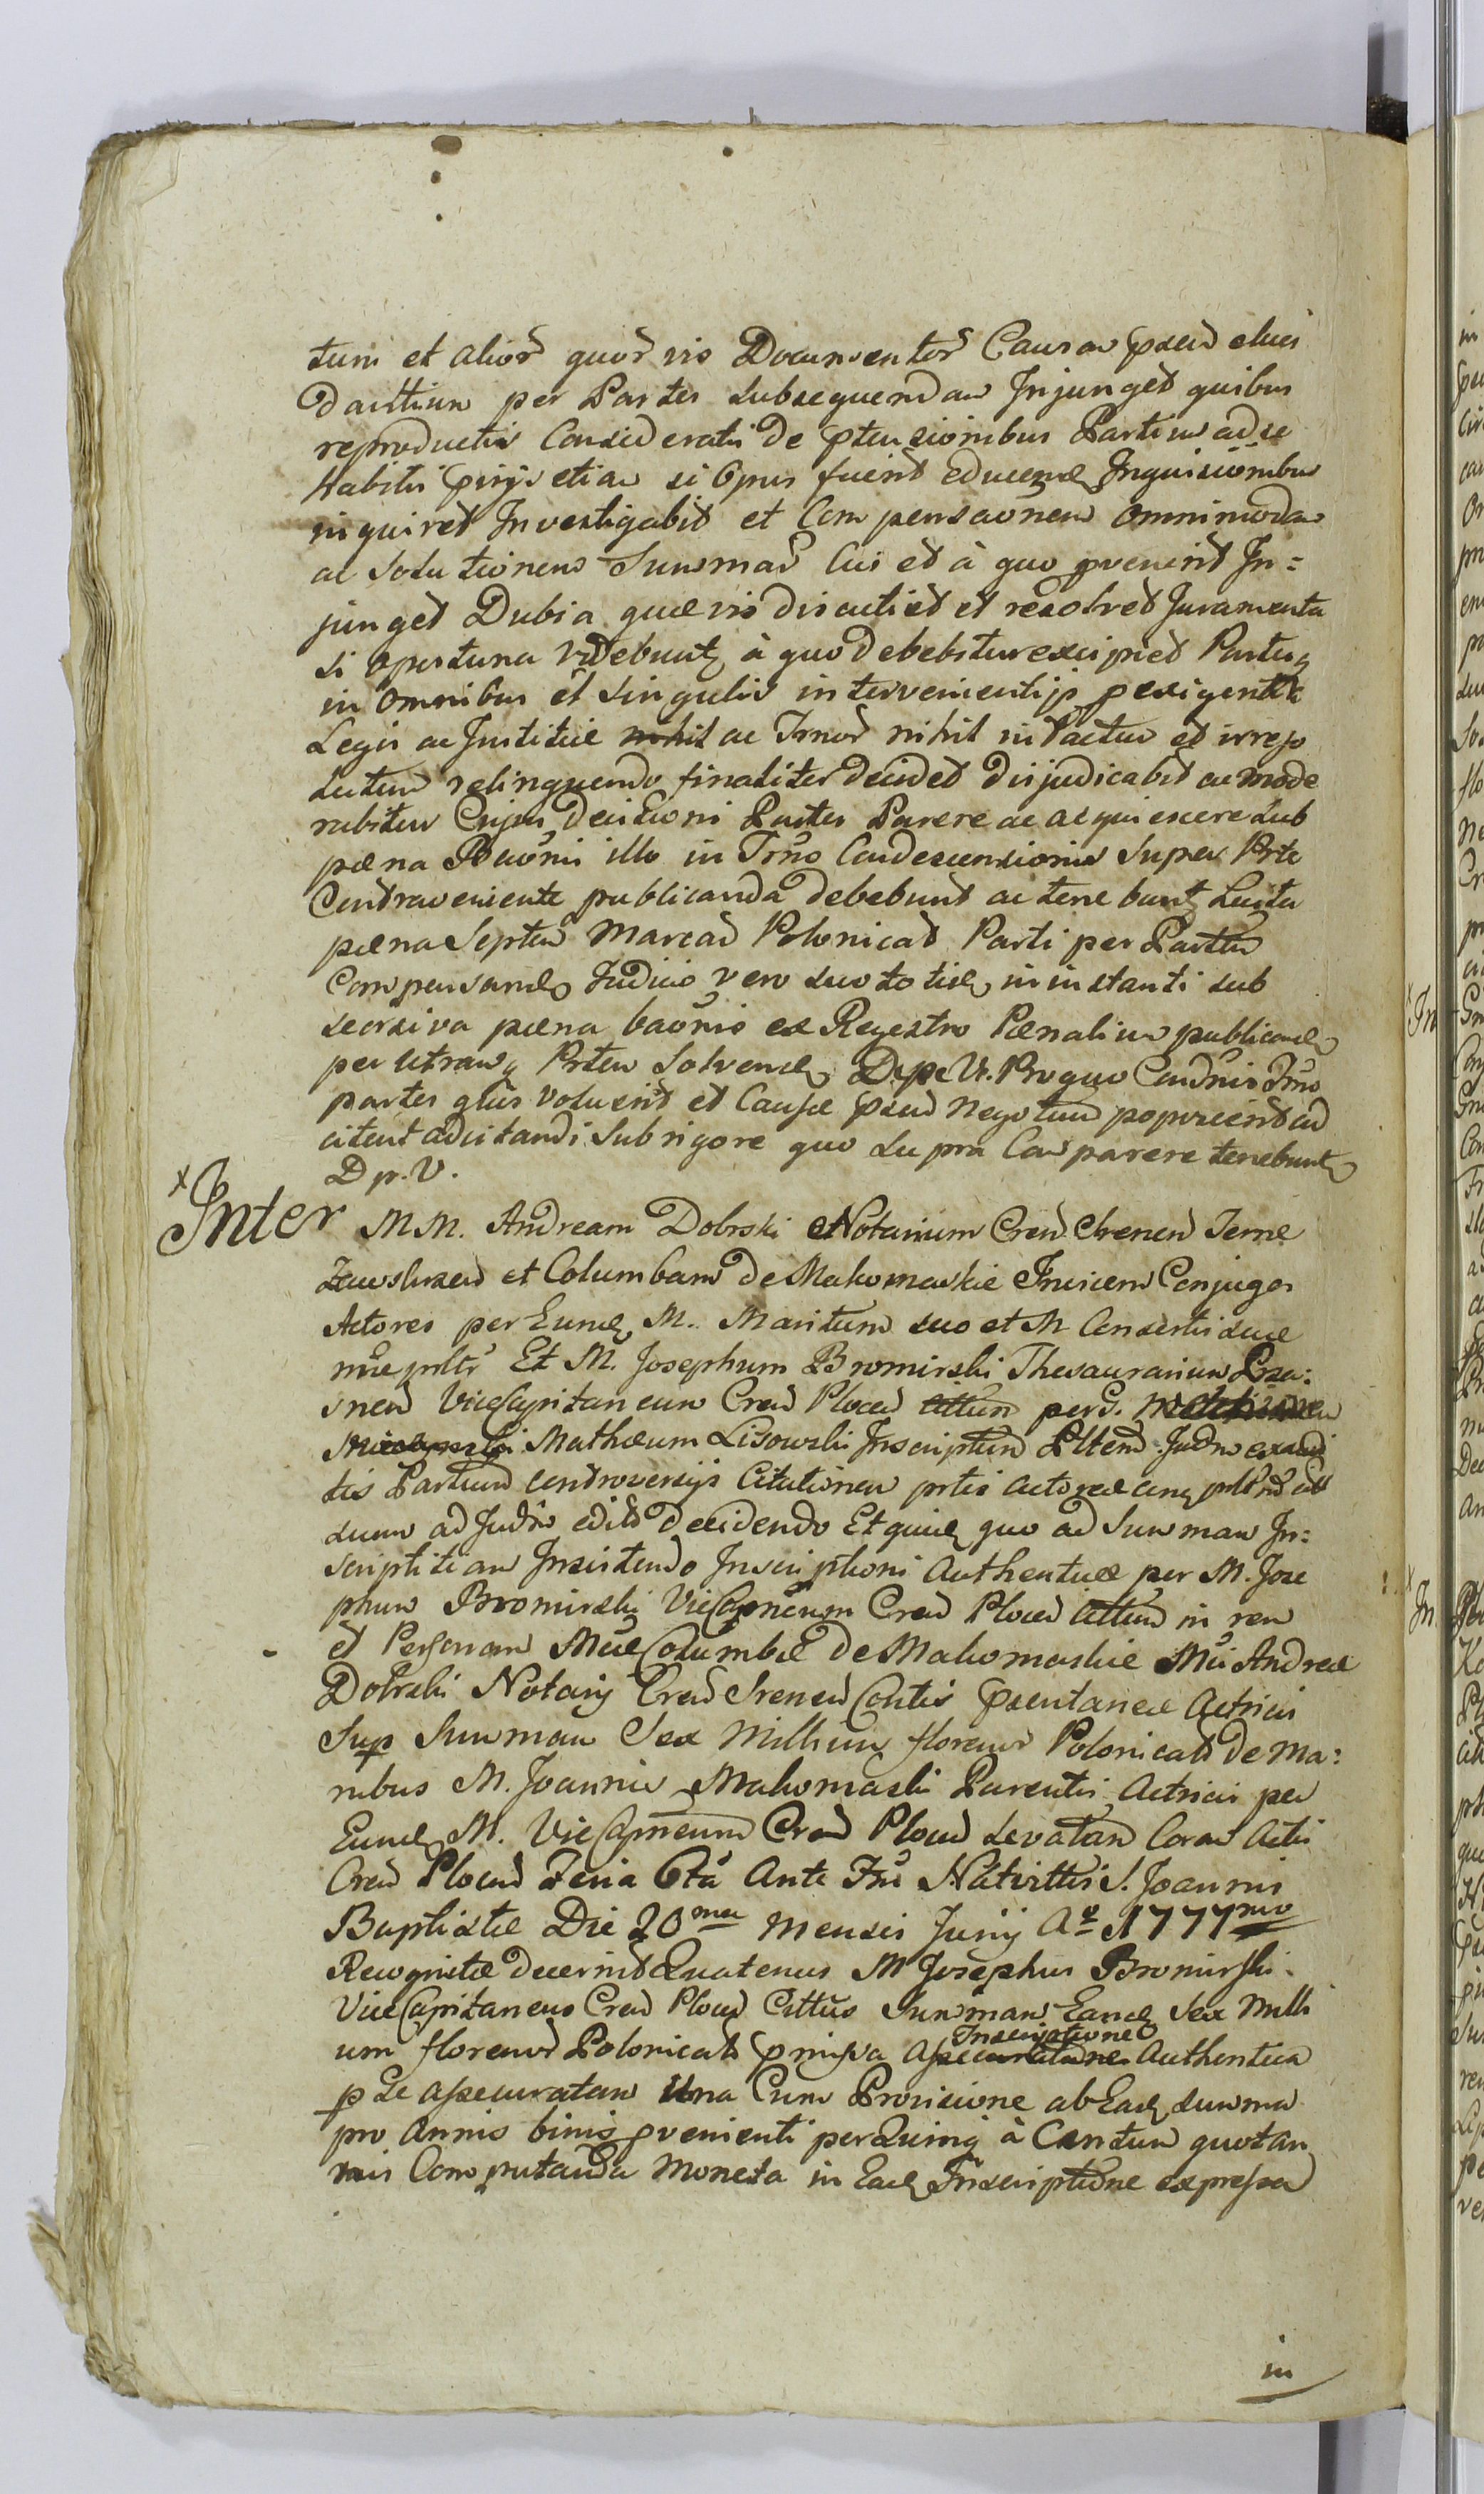 tum et alior quor vis Documentor Causam psen eluci
dantium per Partes subsequendam Injunget quibus
reproductis Consideratis de ptensionibus Partium ad se
Habitis etiam si Opus fuerit educend Inquisiõnibus
inquiret Investigabit et Compensaõnem omnimodam
ac Solutionem Summar Cui et à quo pvenerit In=
junget Dubia quævis discutiet et resolvet Juramenta
si oportuna videbunt à quo debebitur excipiet Partesq
in omnibus et singulis intervenientijs p exigentia
Legis ac Justitiæ nihil ac nihil in Pactum et irreso
lutum relinquendo finaliter decidet dijudicabit ac mode
rabitur Cujus Decisioni Partes Parere ac acquiescere sub
pœna Baõnis illo in Trño Condescensionis super Prte
Contraveniente publicanda debebunt ac tenebunt Luita
pœna Septem Marcar Polonicar Parti per Partem
Compensand Judicio vero suo toties in instanti sub
seorsiva pœna baõnis ex Regestro Pœnalium publicand
per utramq Prtem Solvend D.p.V. Pro quo Condnis Trño
partes qũs voluerit et Causæ psen Negotium poposcerit ad
citent adcitandi sub rigore quo supra Comparere tenebunt
D p. V.
x Inter M M. Andream Dobrski Notarium Cren Srenen Terræ
Zawskrzen et Columbam de Makomaskie Invicem Conjuges
Actores per Eund M. Maritum suo et M Consortis suæ
nñe Et M. Josephum Bromirski Thesaurarium Prza=
snen ViceCapitaneum Cren Plocen Cittum per G.
Mathæum Lisowski Inscriptum Pltem. Judm exaudi
tis Partium controversijs Citationem prtis actoreæ
suum ad Judm edito Decidendo Et quid quo ad Summam In=
scriptitiam Insistendo Inscriptioni Authenticæ per M. Jose
phum Bromirski ViceCapneum Cren Plocen Cittum in rem
et Personam Mcæ Columbæ de Makomaskie Mci Andreæ
Dobrski Notarij Cren Srenen Contis psentaneæ Actricis
Sup Summam Sex Millium florenor Polonical de Ma=
nibus M. Joannis Makomaski Parentis Actricis per
Eund M. ViceCapneum Cren Plocen levatam Coram Actis
Cren Plocen Feria 6ta Ante Fsm Nativittis S. Joannis
Baptistæ Die 20ma Mensis Junij Ao 1777mo
Recognitæ decernit Quatenus M Josephus Bromirski
ViceCapitaneus Cren Plocen Cittus Summam Eand Sex Milli
um florenor Polonical pmissa Assecuratione Inscriptione Authentica
p Se assecuratam Una Cum Provisione ab Ead Summa
pro Annis binis pvenienti per Quinq à Centum quotan
nis Computanda Moneta in Ead Inscriptione expressa
in